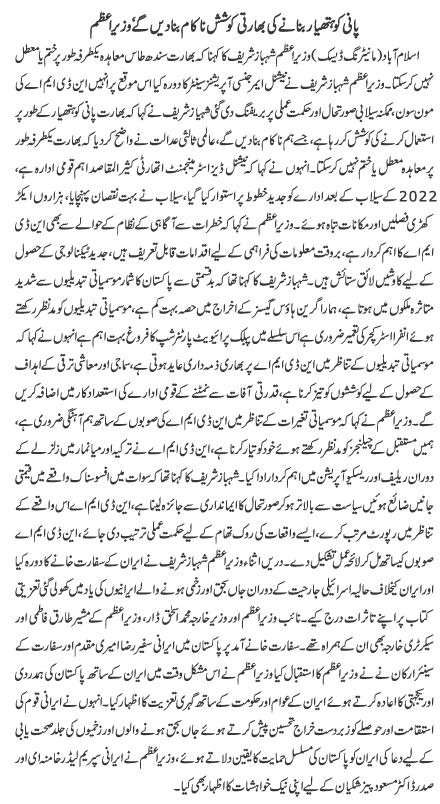 پانی کو ہتھیار بنانے کی بھارتی کوشش ناکام بنا دیں گے‘ وزیراعظم
اسلام آباد (مانیٹرنگ ڈیسک) وزیراعظم شہباز شریف کا کہنا کہ بھارت سندھ طاس معاہدہ یکطرفہ طور پر ختم یا معطل
نہیں کرسکتا۔ وزیراعظم شہباز شریف نے نیشنل ایمرجنسی آپریشنز سینٹر کا دورہ کیا اس موقع پر انہیں این ڈی ایم اے کی
مون سون، ممکنہ سیلابی صورتحال اور حکمت عملی پر بریفنگ دی گئی شہباز شریف نے کہا کہ بھارت پانی کو ہتھیار کے طور پر
استعمال کرنے کی کوشش کر رہا ہے، جسے ہم ناکام بنا دیں گے، عالمی ثالثی عدالت نے واضح کردیا کہ بھارت یکطرفہ طور
پر معاہدہ معطل یا ختم نہیں کرسکتا۔ انہوں نے کہا کہ نیشنل ڈیزاسٹر مینجمنٹ اتھارٹی کثیر المقاصد اہم قومی ادارہ ہے،
2022 کے سیلاب کے بعد ادارے کو جدید خطوط پر استوار کیا گیا، سیلاب نے بہت نقصان پہنچایا، ہزاروں ایکڑ
کھڑی فصلیں اور مکانات تباہ ہوئے۔ وزیراعظم نے کہا کہ خطرات سے آگاہی کے نظام کے حوالے سے بھی این ڈی
ایم اے کا اہم کردار ہے، بروقت معلومات کی فراہمی کے لیے اقدامات قابل تعریف ہیں، جدید ٹیکنالوجی کے حصول
کے لیے کاوشیں لائق ستائش ہیں۔ شہباز شریف کا کہنا تھا کہ بدقسمتی سے پاکستان کا شمار موسمیاتی تبدیلیوں سے شدید
متاثرہ ملکوں میں ہوتا ہے، ہمارا گرین ہاؤس گیسز کے اخراج میں حصہ بہت کم ہے، موسمیاتی تبدیلیوں کو مدنظر رکھتے
ہوئے انفرااسٹرکچر کی تعمیر ضروری ہے اس سلسلے میں پبلک پرائیویٹ پارٹنرشپ کا فروغ بہت اہم ہے انہوں نے کہا کہ
موسمیاتی تبدیلیوں کے تناظر میں این ڈی ایم اے پر بھاری ذمہ داری عاید ہوتی ہے، سماجی اور معاشی ترقی کے اہداف
کے حصول کے لیے کوششوں کو تیز کرنا ہے، قدرتی آفات سے نمٹنے کے قومی ادارے کی استعداد کار میں اضافہ کریں
گے۔ وزیراعظم نے کہا کہ موسمیاتی تغیرات کے تناظر میں این ڈی ایم اے کی صوبوں کے ساتھ ہم آہنگی ضروری ہے،
ہمیں مستقبل کے چیلنجز کو مدنظر رکھتے ہوئے خود کو تیار کرنا ہے، این ڈی ایم اے نے ترکیہ اور میانمار میں زلزلے کے
دوران ریلیف اور ریسکیو آپریشن میں اہم کردار ادا کیا۔ شہباز شریف کا کہنا تھا کہ سوات میں افسوسناک واقعے میں قیمتی
جانیں ضائع ہوئیں سیاست سے بالاتر ہو کر صورتحال کا ایمانداری سے جائزہ لینا ہے، این ڈی ایم اے اس واقعے کے
تناظر میں رپورٹ مرتب کرے، ایسے واقعات کی روک تھام کے لیے حکمت عملی ترتیب دی جائے، این ڈی ایم اے
صوبوں کیساتھ مل کر لائحہ عمل تشکیل دے۔ دریں اثناء وزیراعظم شہباز شریف نے ایران کے سفارت خانے کا دورہ کیا
اور ایران کیخلاف حالیہ اسرائیلی جارحیت کے دوران جاں بحق اور زخمی ہونے والے ایرانیوں کی یاد میں کھولی گئی تعزیتی
کتاب پر اپنے تاثرات درج کیے۔ نائب وزیراعظم اور وزیر خارجہ محمد اسحٰق ڈار، وزیراعظم کے مشیر طارق فاطمی اور
سیکرٹری خارجہ بھی ان کے ہمراہ تھے۔ سفارت خانے آمد پر پاکستان میں ایرانی سفیر رضا امیری مقدم اور سفارت کے
سینئر ارکان نے نے وزیراعظم کا استقبال کیا وزیراعظم نے اس مشکل وقت میں ایران کے ساتھ پاکستان کی ہمدردی
اور یکجہتی کا اعادہ کرتے ہوئے ایران کے عوام اور حکومت کے ساتھ گہری تعزیت کا اظہار کیا۔ انہوں نے ایرانی قوم کی
استقامت اور حوصلے کو زبردست خراج تحسین پیش کرتے ہوئے جاں بحق ہونے والوں اور زخمیوں کی جلد صحت یابی
کے لیے دعا کی ایران کو پاکستان کی مسلسل حمایت کا یقین دلاتے ہوئے، وزیراعظم نے ایرانی سپریم لیڈر خامنہ ای اور
صدر ڈاکٹر مسعود پیزشکیان کے لیے اپنی نیک خواہشات کا اظہار بھی کیا۔